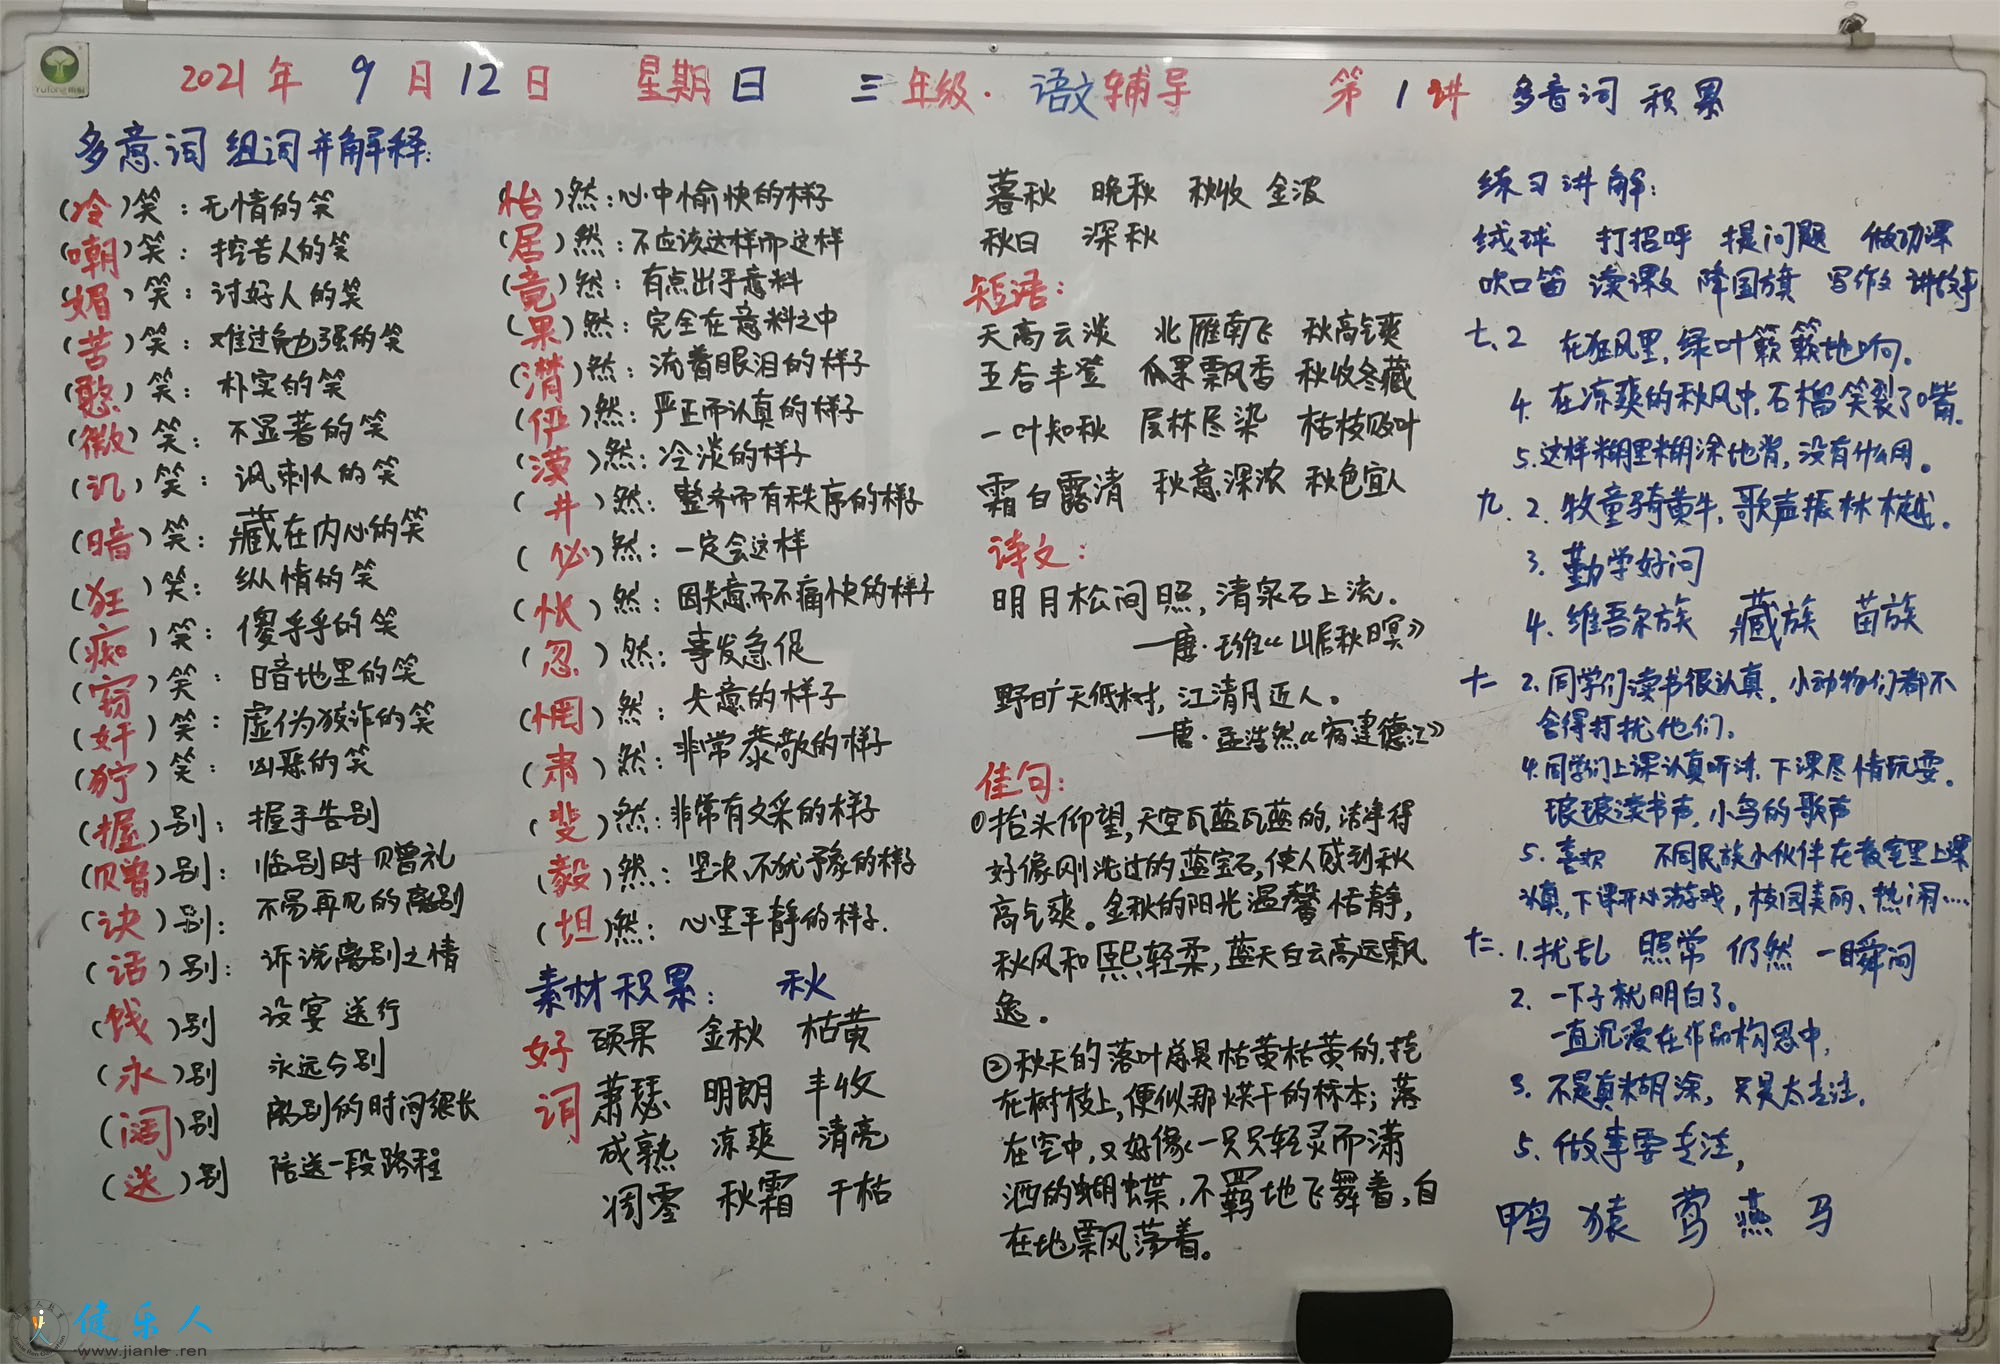 2021年 9月12日 星期日 三年级·语文辅导 第1讲 多音词 积累
多意词 组词并解释：
(冷)笑：无情的笑
(嘲)笑：挖苦人的笑
(媚)笑：讨好人的笑
(苦)笑：难过勉强的笑
(憨)笑：朴实的笑
(微)笑：不显著的笑
(讥)笑：讽刺人的笑
(暗)笑：藏在内心的笑
(狂)笑：纵情的笑
(痴)笑：傻乎乎的笑
(窃)笑：暗地里的笑
(奸)笑：虚伪狡诈的笑
(狞)笑：凶恶的笑
(握)别：握手告别
(赠)别：临别时赠礼
(诀)别：不易再见的离别
(话)别：诉说离别之情
(饯)别 设宴送行
(永)别 永远分别
(阔)别 离别的时间很长
(送)别 陪送一段路程
(怡)然：心中愉快的样子
(居)然：不应该这样而这样
(竟)然：有点出乎意料
(果)然：完全在意料之中
(潸)然：流着眼泪的样子
(俨)然：严正而认真的样子
(漠)然：冷淡的样子
(井)然：整齐而有秩序的样子
(必)然：一定会这样
(怅)然：因失意而不痛快的样子
(忽)然：事发急促
(惘)然：失意的样子
(肃)然：非常恭敬的样子
(斐)然：非常有文采的样子
(毅)然：坚决、不犹豫的样子
(坦)然：心里平静的样子.
素材积累： 秋
好词 硕果 金秋 枯黄
萧瑟 明朗 丰收
成熟 凉爽 清亮
凋零 秋霜 干枯
暮秋 晚秋 秋收 金波
秋日 深秋
短语：
天高云淡 北雁南飞 秋高气爽
五谷丰登 瓜果飘香 秋收冬藏
一叶知秋 层林尽染 枯枝败叶
霜白露清 秋意深浓 秋色宜人
诗文：
明月松间照，清泉石上流.
—唐·王维《山居秋暝》
野旷天低树，江清月近人。
—唐·孟浩然《宿建德江》
佳句：
①抬头仰望，天空瓦蓝瓦蓝的，洁净得
好像刚洗过的蓝宝石，使人感到秋
高气爽。金秋的阳光温馨恬静，
秋风和熙轻柔，蓝天白云高远飘
逸。
②秋天的落叶总是枯黄枯黄的，挂
在树枝上，便似那烘干的标本；落
在空中，又好像一只只轻灵而潇
洒的蝴蝶，不羁地飞舞着，自
在地飘荡着。
练习讲解：
绒球 打招呼 提问题 做功课
吹口笛 读课文 降国旗 写作文 讲故事
七、2 在狂风里，绿叶簌簌地响。
4. 在凉爽的秋风中，石榴笑裂了嘴。
5. 这样糊里糊涂地背，没有什么用。
九. 2. 牧童骑黄牛，歌声振林樾.
3. 勤学好问
4. 维吾尔族 藏族 苗族
十一 2. 同学们读书很认真，小动物们都不
舍得打扰他们.
4. 同学们上课认真听讲，下课尽情玩耍.
琅琅读书声，小鸟的歌声
5. 喜欢 不同民族小伙伴在教室里上课
认真，下课开心游戏，校园美丽、热闹……
十二. 1. 扰乱 照常 仍然 一瞬间
2. 一下子就明白了。
一直沉浸在作品构思中，
3. 不是真糊涂，只是太专注.
5. 做事要专注，
鸭 猿 莺 燕 马
健乐人
www.jianle.ren